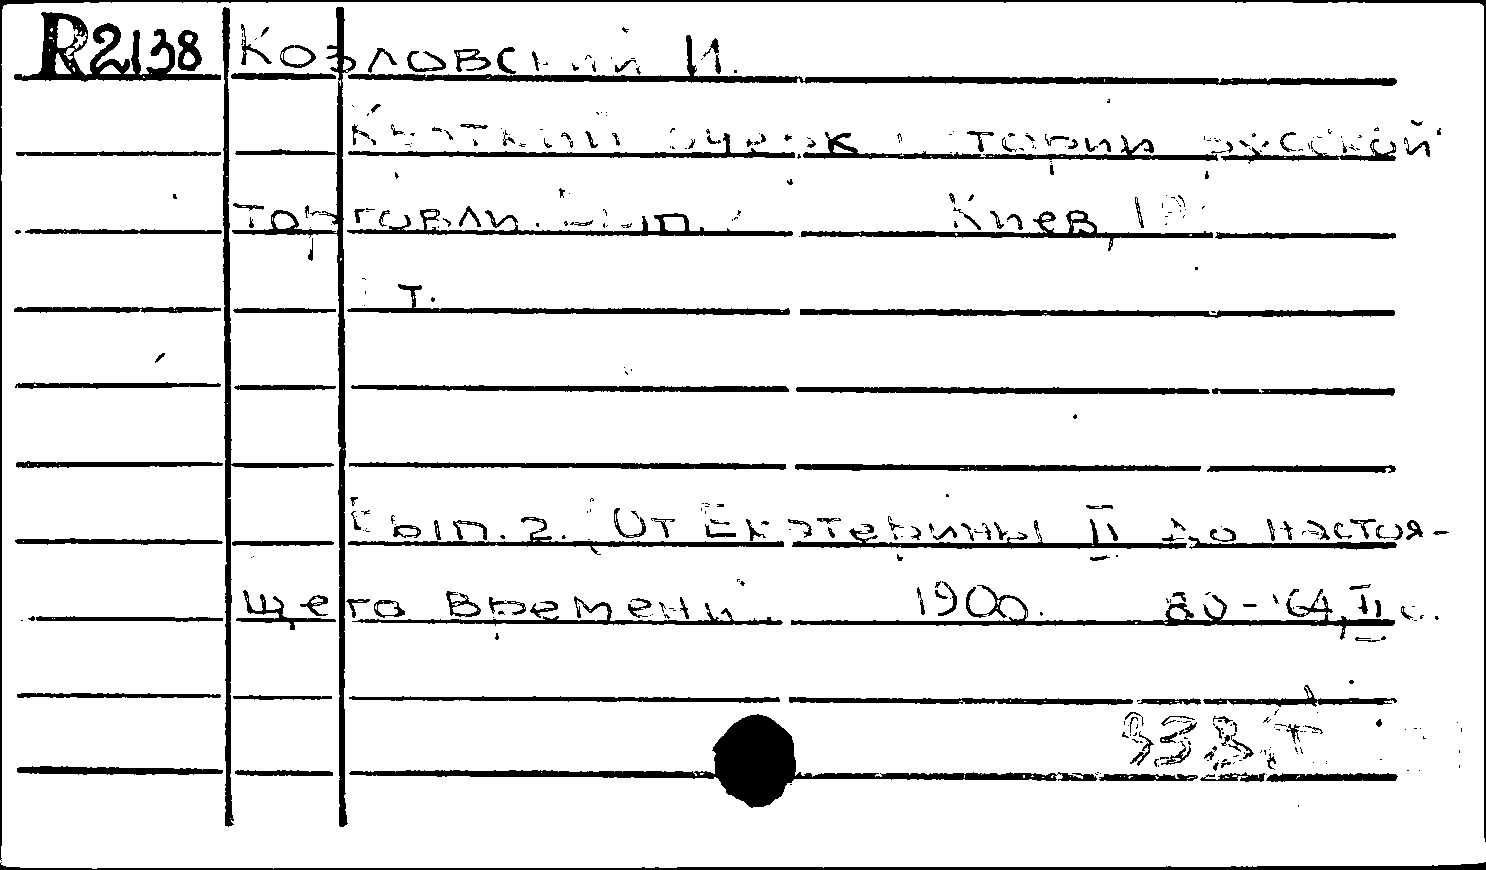 R2138 Козловский И.
Краткий очерк истории русской
торговли. Вып. Киев,
т.
Вып. 2. От Екатерины II до настоя-
щего времени. 1900. 80-'64, II с.